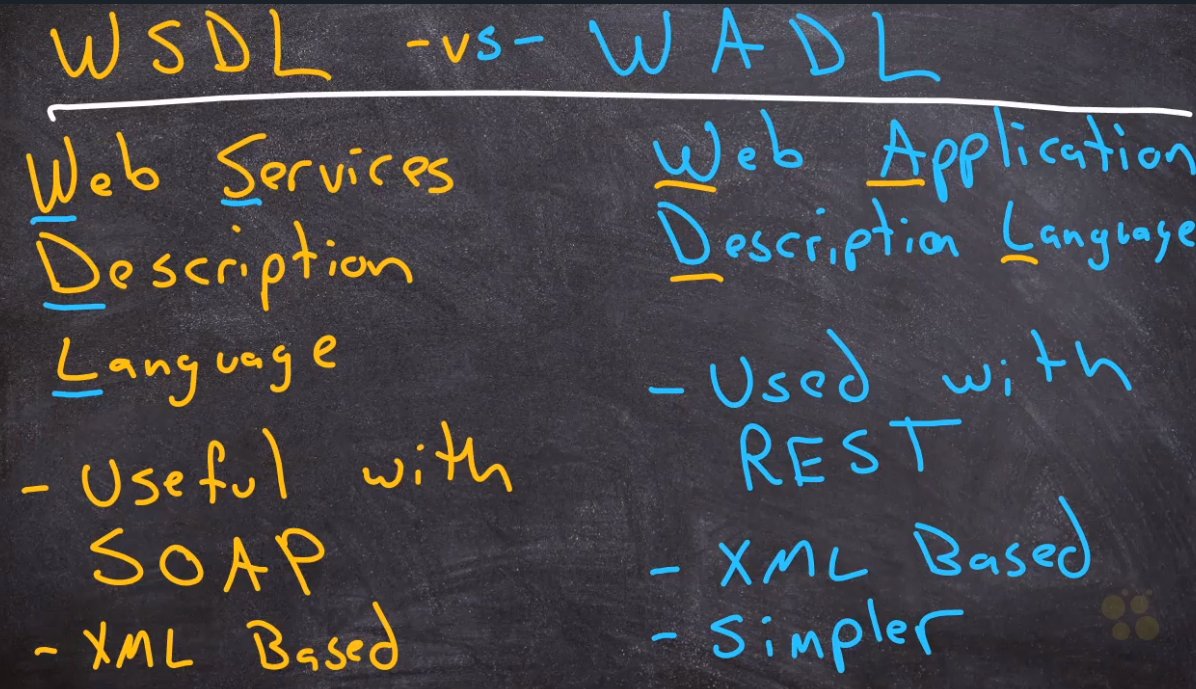 WSDL -vs- WADL
Web Services
Description
Language
- Useful with
SOAP
- XML Based
Web Application
Description Language
- Used with
REST
- XML Based
- Simpler